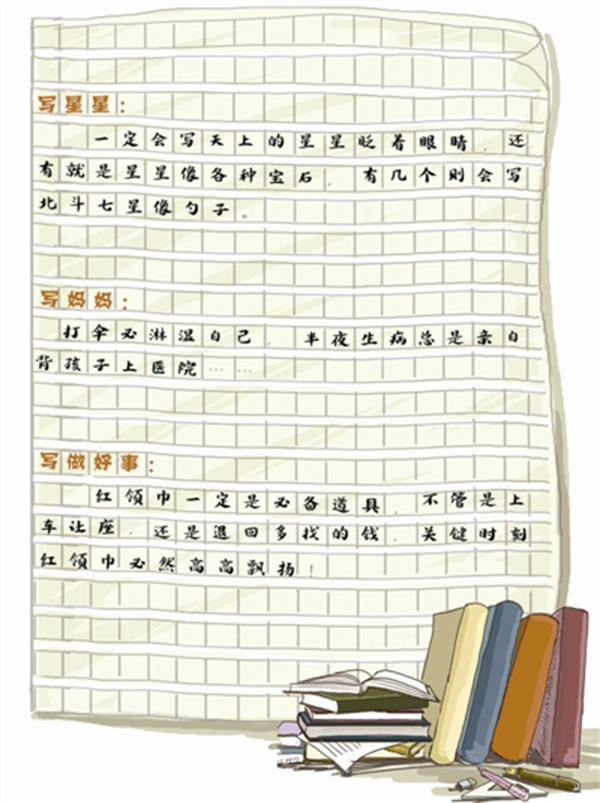 写星星：
一定会写天上的星星眨着眼睛，还
有就是星星像各种宝石，有几个则会写
北斗七星像勺子。
写妈妈：
打伞必淋湿自己，半夜生病总是亲自
背孩子上医院……
写做好事：
红领巾一定是必备道具，不管是上
车让座，还是退回多找的钱，关键时刻
红领巾必然高高飘扬！